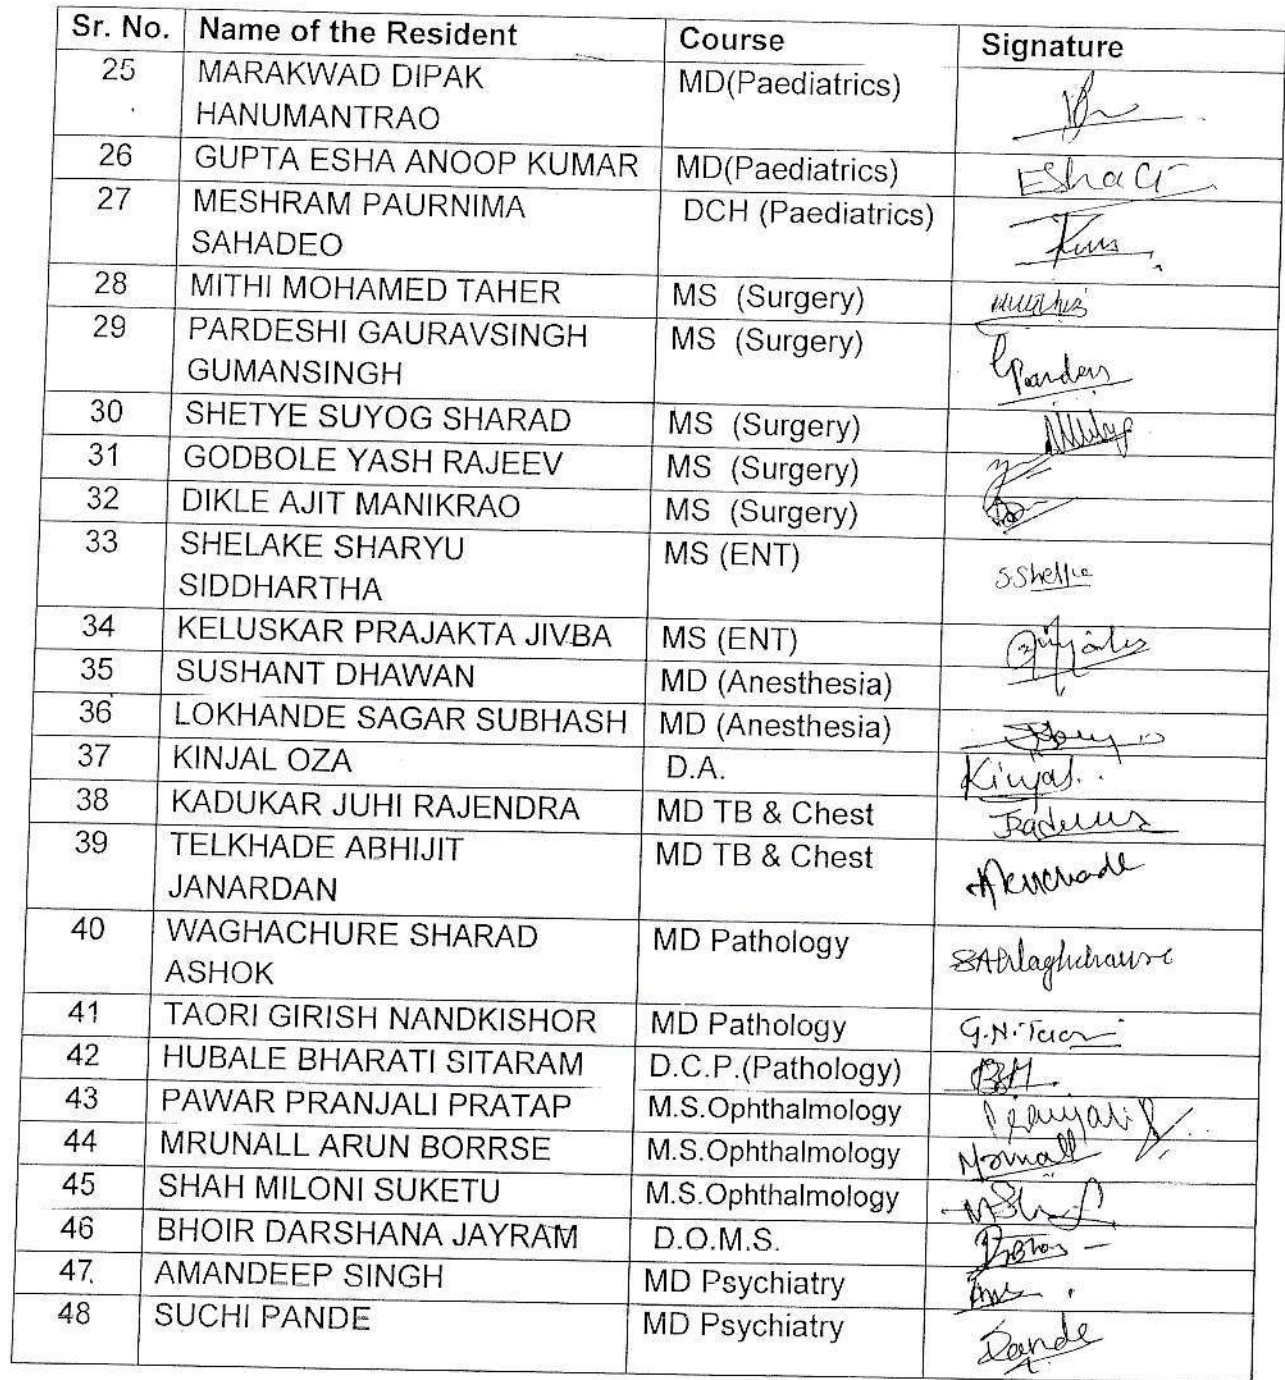 Sr. No. Name of the Resident Course Signature
25 MARAKWAD DIPAK MD(Paediatrics)
HANUMANTRAO
26 GUPTA ESHA ANOOP KUMAR MD(Paediatrics) Esha G
27 MESHRAM PAURNIMA DCH (Paediatrics)
SAHADEO
28 MITHI MOHAMED TAHER MS (Surgery)
29 PARDESHI GAURAVSINGH MS (Surgery)
GUMANSINGH
30 SHETYE SUYOG SHARAD MS (Surgery)
31 GODBOLE YASH RAJEEV MS (Surgery)
32 DIKLE AJIT MANIKRAO MS (Surgery)
33 SHELAKE SHARYU MS (ENT)
SIDDHARTHA
34 KELUSKAR PRAJAKTA JIVBA MS (ENT)
35 SUSHANT DHAWAN MD (Anesthesia)
36 LOKHANDE SAGAR SUBHASH MD (Anesthesia)
37 KINJAL OZA D.A. Kinjal.
38 KADUKAR JUHI RAJENDRA MD TB & Chest
39 TELKHADE ABHIJIT MD TB & Chest
JANARDAN
40 WAGHACHURE SHARAD MD Pathology
ASHOK
41 TAORI GIRISH NANDKISHOR MD Pathology G.N.Taori
42 HUBALE BHARATI SITARAM D.C.P.(Pathology) BH.
43 PAWAR PRANJALI PRATAP M.S.Ophthalmology Pranjali
44 MRUNALL ARUN BORRSE M.S.Ophthalmology Mrunall
45 SHAH MILONI SUKETU M.S.Ophthalmology
46 BHOIR DARSHANA JAYRAM D.O.M.S.
47. AMANDEEP SINGH MD Psychiatry
48 SUCHI PANDE MD Psychiatry Pande